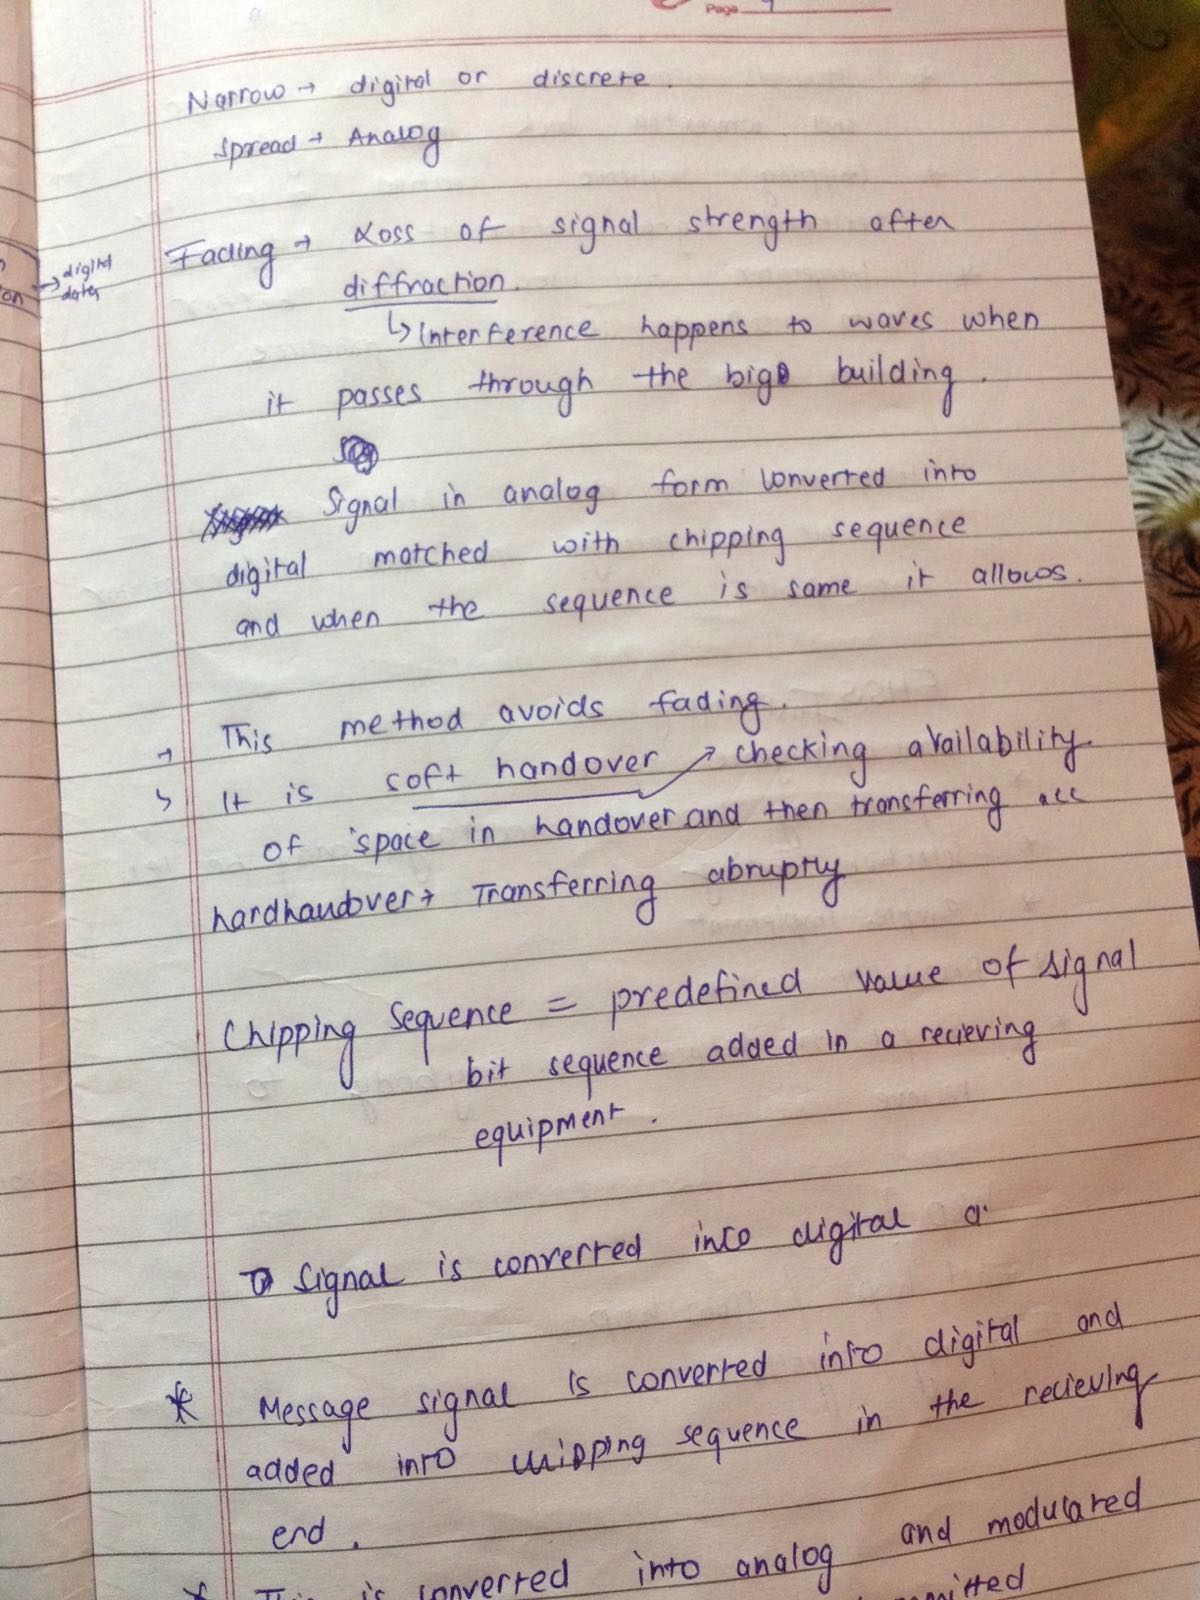 Page 9
Narrow → digital or discrete.
Spread → Analog
Fading → Loss of signal strength after
→ digital
data
on
diffraction.
↳ Interference happens to waves when
it passes through the big building.
Signal in analog form converted into
digital matched with chipping sequence
and when the sequence is same it allows.
→ This method avoids fading.
↳ It is soft handover → checking availability
of space in handover and then transferring
hardhandover → Transferring abruptly
Chipping Sequence = predefined value of signal
bit sequence added in a recieving
equipment.
Signal is converted into digital a
* Message signal is converted into digital and
added into chipping sequence in the recieving
end.
* This is converted into analog and modulated